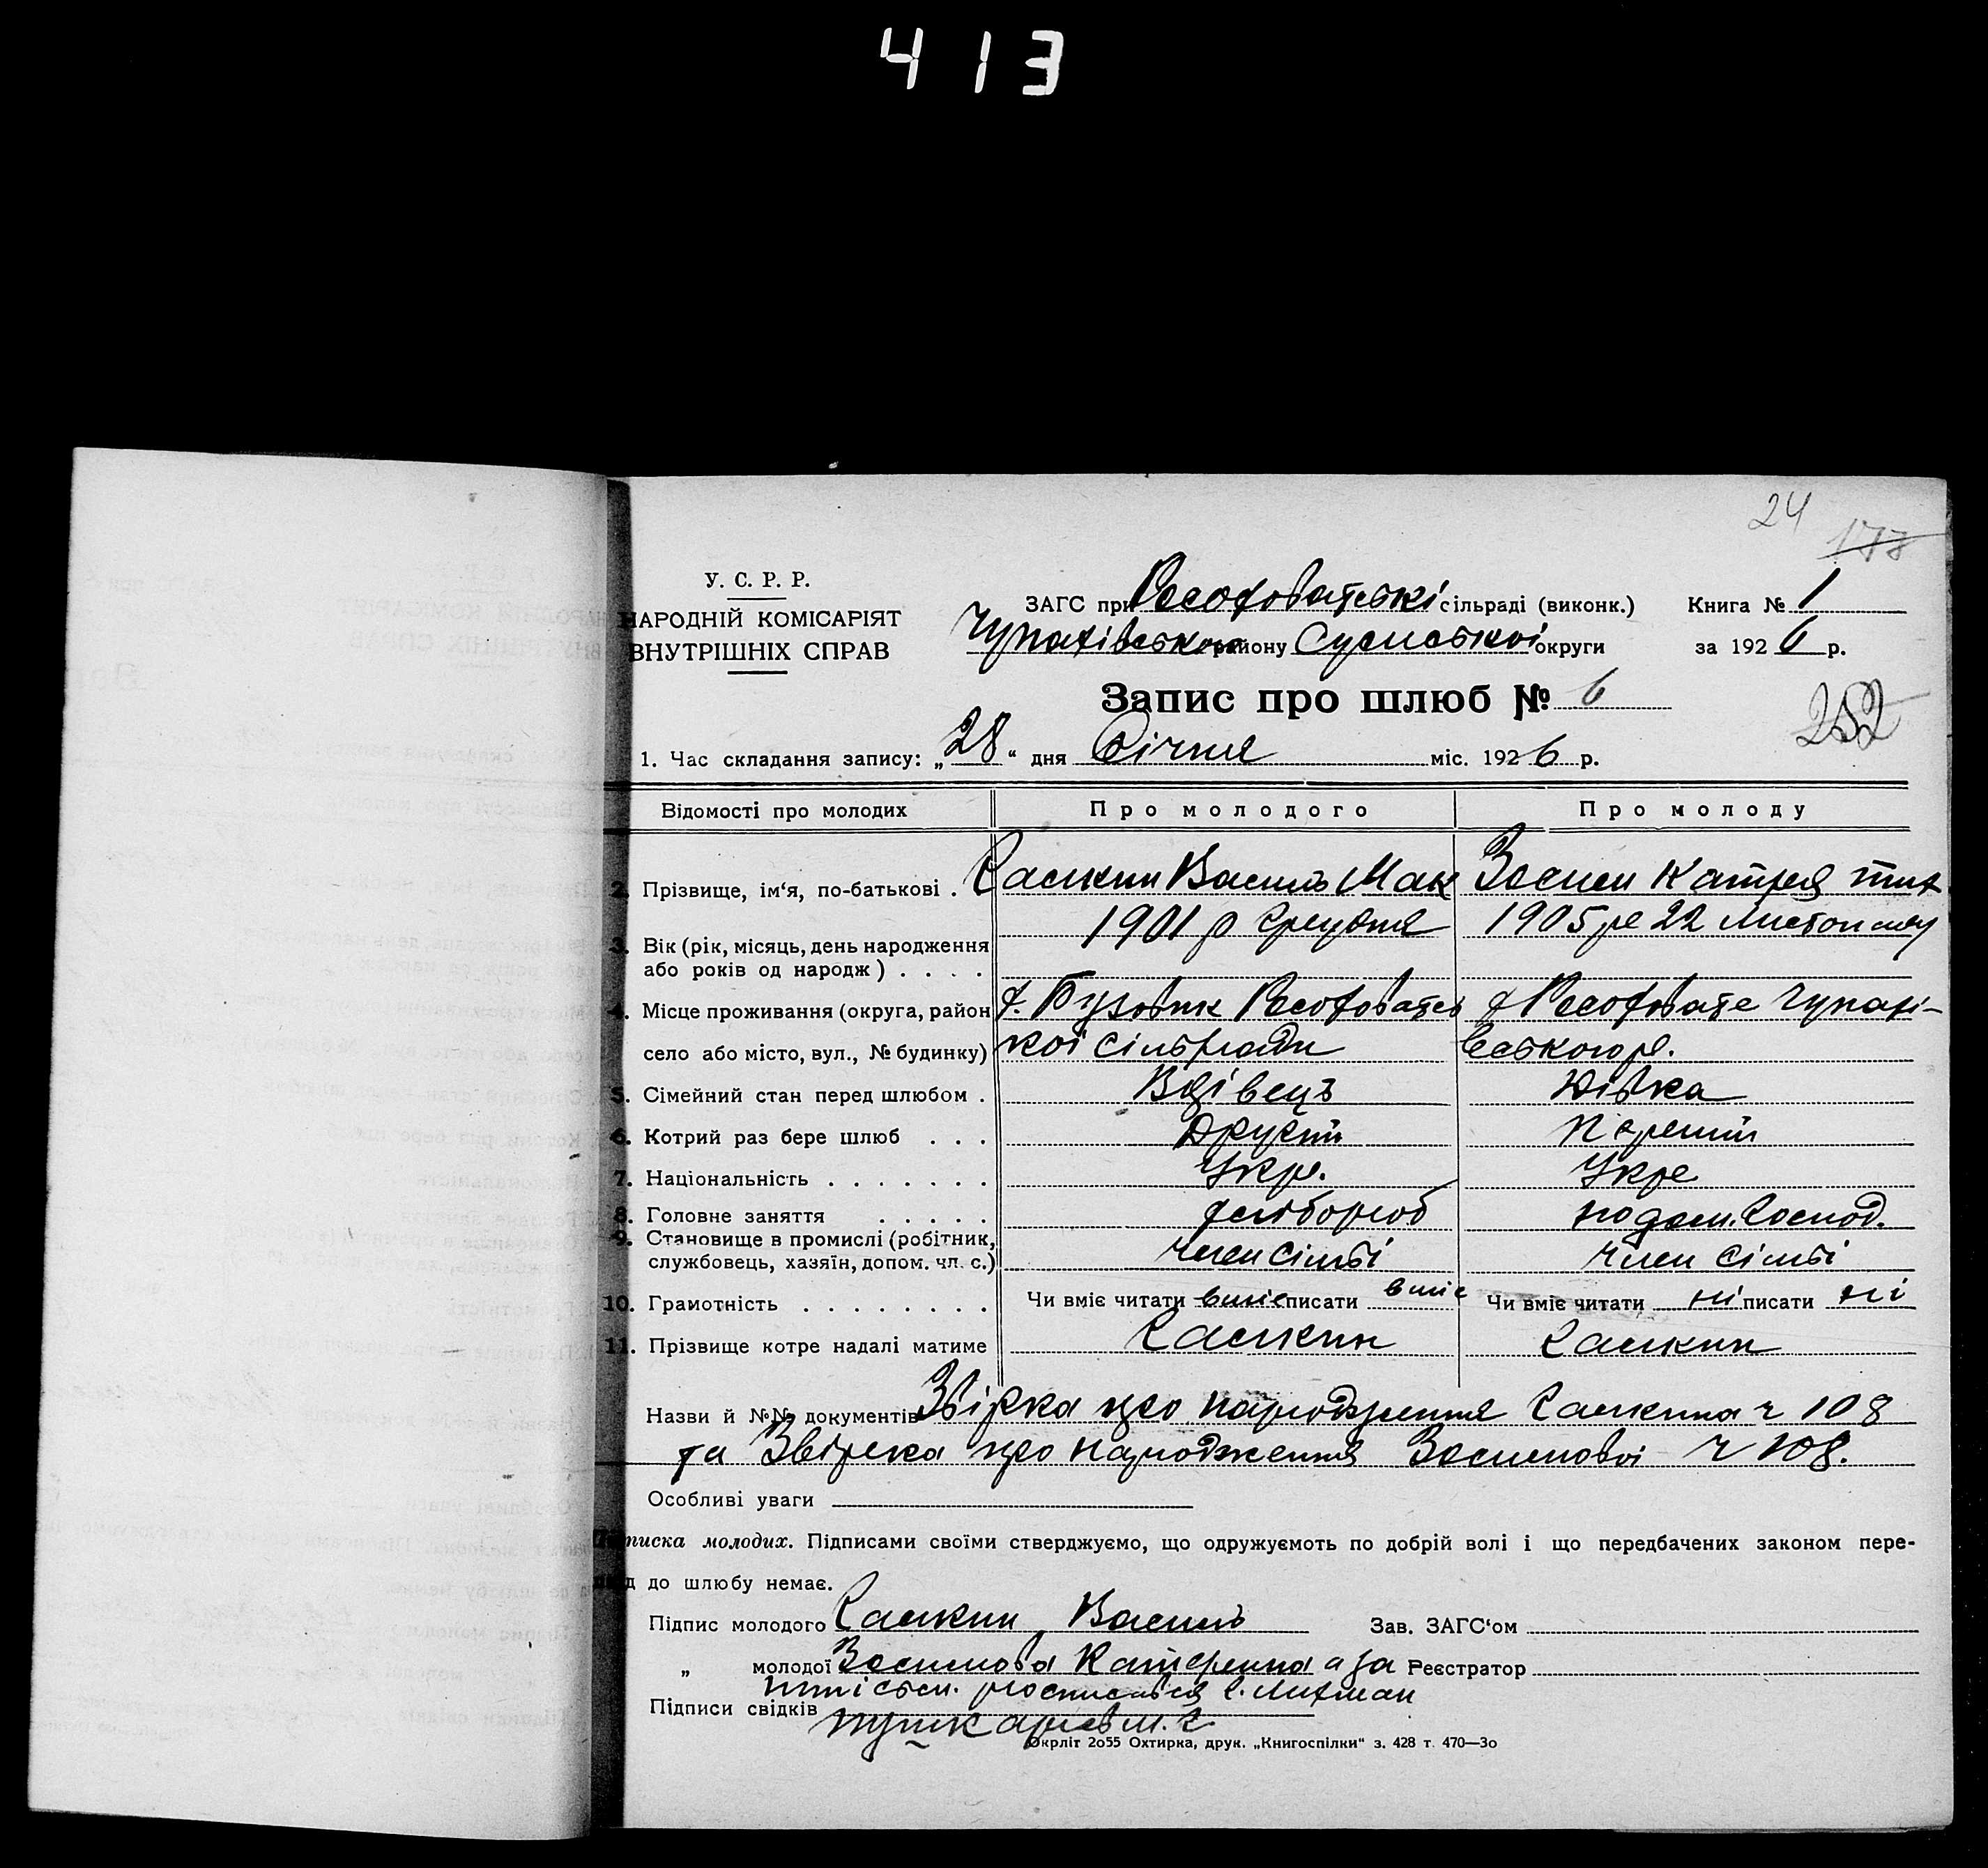 413
24
178
У. С. Р. Р.
НАРОДНІЙ КОМІСАРІЯТ
ВНУТРІШНІХ СПРАВ
ЗАГС при Рясофоватські сільраді (виконк.) Книга № 1
Чупахівського району Сумської округи за 1926 р.
Запис про шлюб № 6
252
1. Час складання запису: „28“ дня Січня міс. 1926 р.
Відомості про молодих Про молодого Про молоду
2. Прізвище, ім‘я, по-батькові . Василь Мак Катря тих
3. Вік (рік, місяць, день народження 1901 р Грудня 1905 ре 22 Листопаду
або років од народж) . . . .
4. Місце проживання (округа, район х. Бузовик х
село або місто, вул., № будинку) кої сільради
5. Сімейний стан перед шлюбом . Вдівець Дівка
6. Котрий раз бере шлюб . . . Другий Перший
7. Національність . . . . . . . Укр. Укре
8. Головне заняття . . . . . хлібороб по дом. Господ.
9. Становище в промислі (робітник, член сімьї член сімьї
службовець, хазяїн, допом. чл. с.)
10. Грамотність . . . . . . . . Чи вміє читати вміє писати вміє Чи вміє читати ні писати ні
11. Прізвище котре надалі матиме
Назви й №№ документів Звірка про народження ч 108
та Звірка про народження ч 108.
Особливі уваги
Підписка молодих. Підписами своїми стверджуємо, що одружуємоть по добрій волі і що передбачених законом пере-
д до шлюбу немає.
Підпис молодого Василь Зав. ЗАГС‘ом
„ молодої Катерина а за Реєстратор
росписався
Підписи свідків
Окрліт 2о55 Охтирка, друк. „Книгоспілки“ з. 428 т. 470—3о